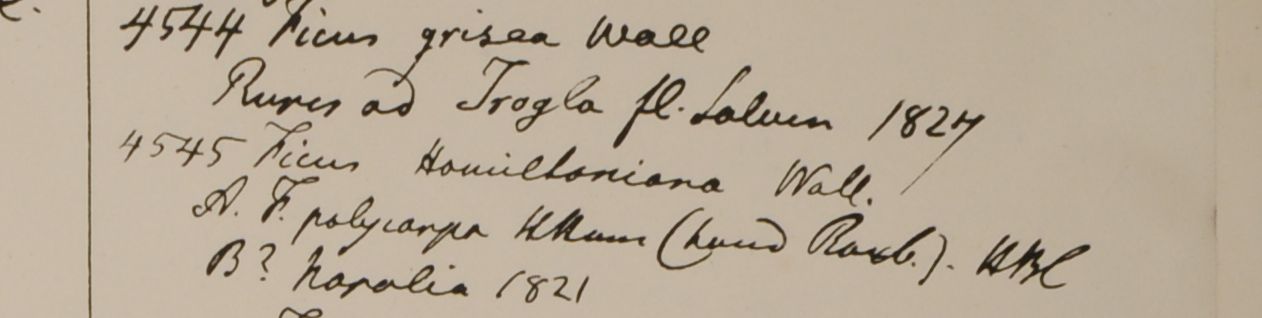 4544 Ficus grisea Wall
Rupes ad Trogla fl. Saluen 1827
4545 Ficus Hamiltoniana Wall.
A. F. polycarpa HHam (haud Roxb.). HBC
B? Napalia 1821